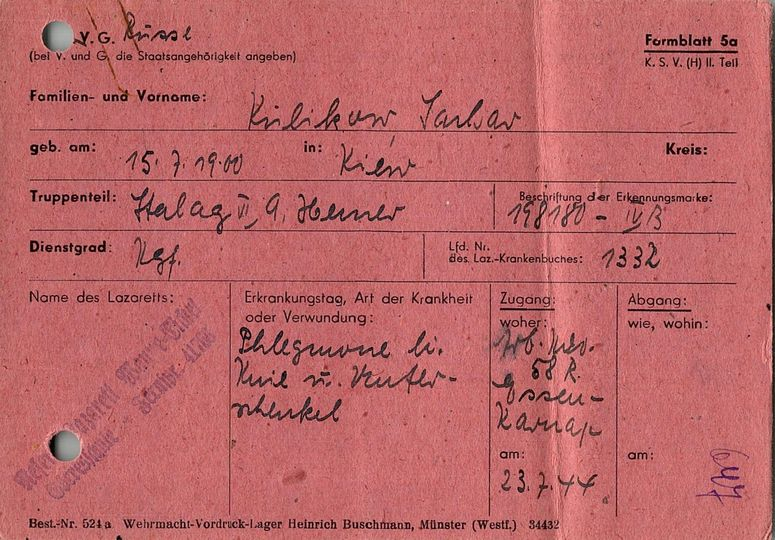 V. G. Russe
Formblatt 5a
(bei V. und G. die Staatsangehörigkeit angeben)
K. S. V. (H) II. Teil
Familien- und Vorname: Kulikow Sachar
geb. am: 15. 7. 1900 in: Kiew Kreis:
Truppenteil: Stalag VI, A, Hemer
Beschriftung der Erkennungsmarke: 198180 – IV B
Dienstgrad: Kgf.
Lfd. Nr.
des Laz.-Krankenbuches: 1332
Name des Lazaretts:
Erkrankungstag, Art der Krankheit
oder Verwundung:
Phlegmone li.
Knie u. Unter-
schenkel
Zugang:
woher:
Arb. Kdo.
58 R.
Essen-
Karnap
am:
23. 7. 44
Abgang:
wie, wohin:
am:
Best.-Nr. 524 a Wehrmacht-Vordruck-Lager Heinrich Buschmann, Münster (Westf.) 34432